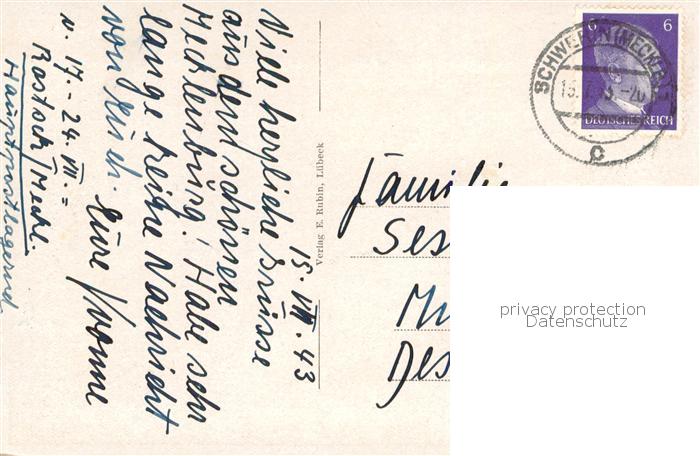 15. VII. 43
Viele herzliche Grüsse
aus dem schönen
Mecklenburg! Habe sehr
lange keine Nachricht
von Euch.
Eure Yvonne
v. 17. - 24. VII. =
Rostock/Meckl.
Hauptpostlagernd
Verlag E. Rubin, Lübeck
6 6
DEUTSCHES REICH
SCHWERIN (MECKLB)
c
Familie
Ses
Mü
Des
privacy protection
Datenschutz